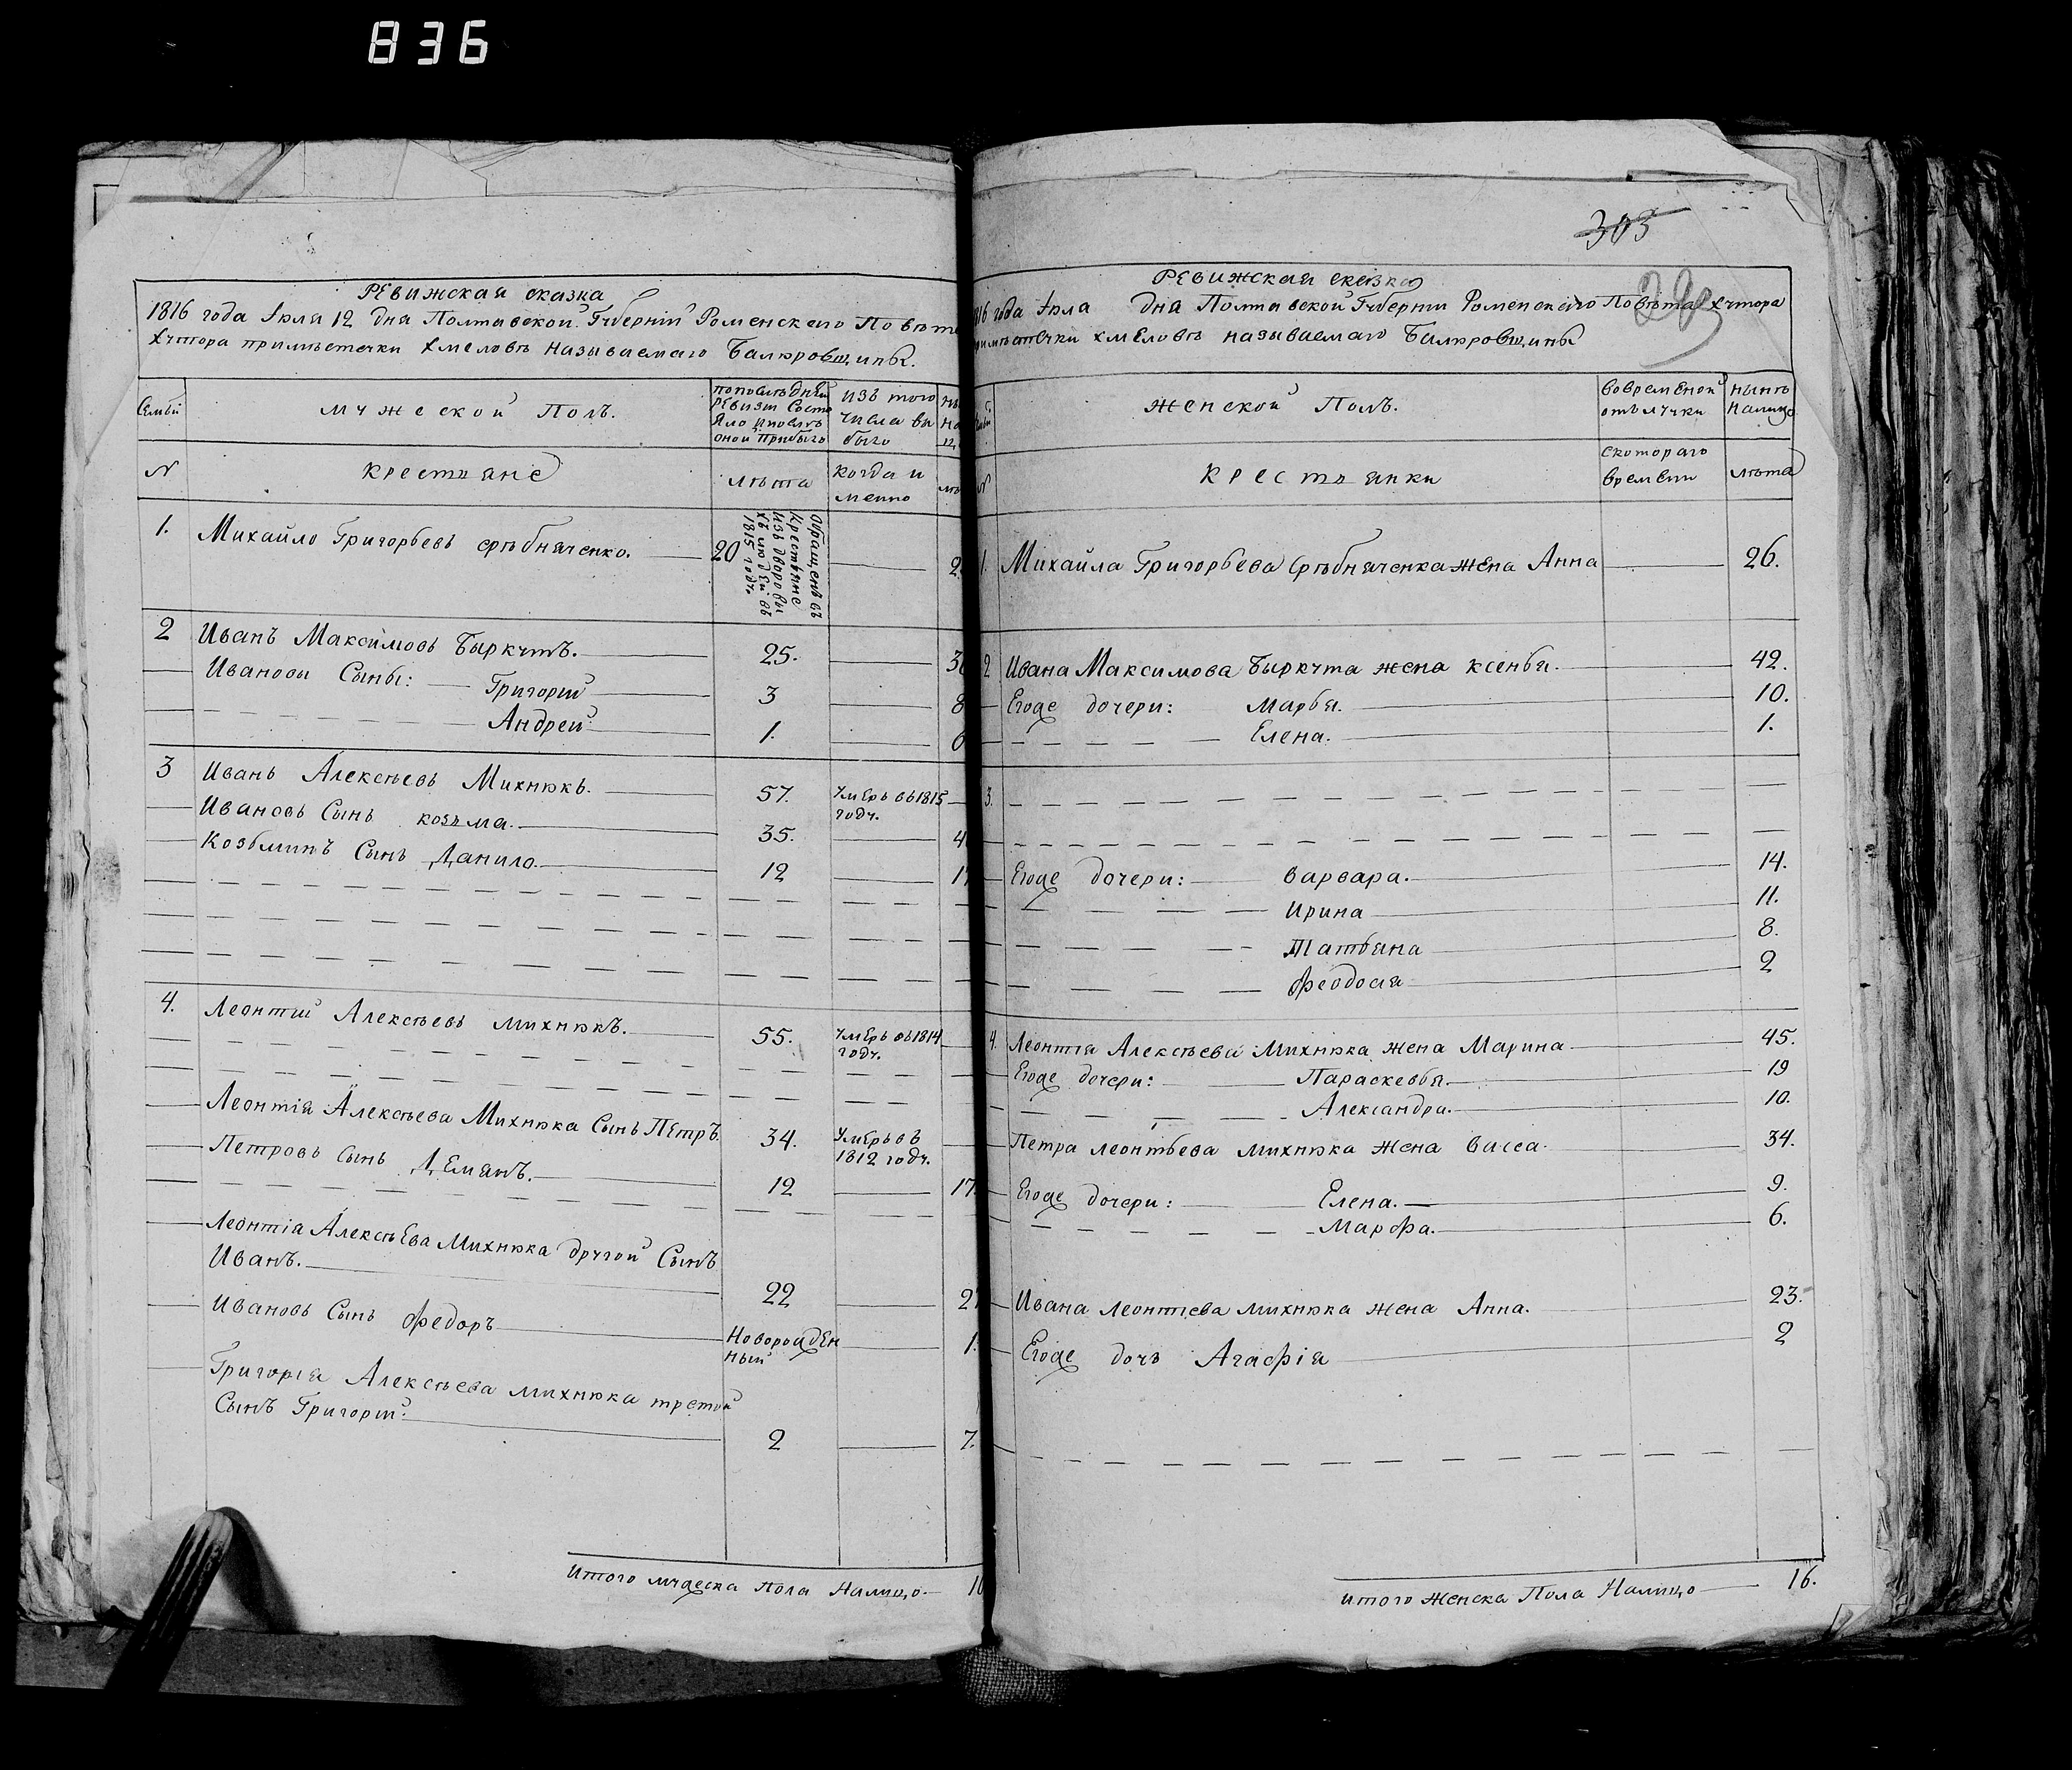 836
Ревижская сказка
1816 года Іюля 12 дня Полтавской Губерніи Роменскаго Повѣта
хутора примѣстечки Хмеловѣ называемаго Балюровщины.
Семьи
мужеской Полъ.
попослѣдней
ревизіи состо
яло и послѣ
оной прибыло
изъ того
числа вы
было
№
крестьяне
лѣта
когда и
менно
1.
Михайло Григорьевъ срѣбняченко.
20
Обращенъ въ
крестьяне
изъ дворовы
хъ людей въ
1815 году.
2
Иванъ Максимовъ Быркутъ.
25.
Ивановы Сыны: Григорий
3
8
Андрей
1.
3
Иванъ Алексѣевъ Михнюкъ.
57.
Умеръ въ 1815
году.
Ивановъ Сынъ козьма.
35.
Козьминъ Сынъ Данило.
12
4.
Леонтий Алексѣевъ михнюкъ.
55.
Умеръ въ 1814
году.
Леонтія Алексѣева Михнюка Сынъ Петръ.
34.
Умеръ въ
1812 году.
Петровъ Сынъ Демянъ.
12
17.
Леонтія Алексѣева Михнюка другой Сынъ
Иванъ.
22
Ивановъ Сынъ Федоръ
Новорожден
ный
1.
Григорія Алексѣева михнюка третий
Сынъ Григорий.
2
7.
Итого мужеска пола Налицо.
303
Ревижская сказка
1816 года Іюла дня Полтавской Губернии Роменскаго Повѣта хутора
примѣстечки хмеловѣ называемаго Балюровщины
женской Полъ.
вовременной
отълучки
нынѣ
налицо
№
крестьянки
скотораго
времени
лѣта
1.
Михайла Григорьева Срѣбняченка жена Анна
26.
2
Ивана Максимова Быркута жена ксенья.
42.
Егоже дочери: Марья.
10.
Елена.
1.
3.
Егоже дочери: варвара.
14.
Ирина
11.
Татьяна
8.
Феодосия
2
4.
Леонтія Алексѣева Михнюка жена Марина
45.
Егоже дочери: Параскевья.
19
Александра.
10.
Петра леонтьева михнюка жена васса.
34.
Егоже дочери: Елена.
9.
Марфа.
6.
Ивана леонтиева михнюка жена Анна.
23.
Егоже дочь Агафія
2
итого женска Пола Налицо
16.